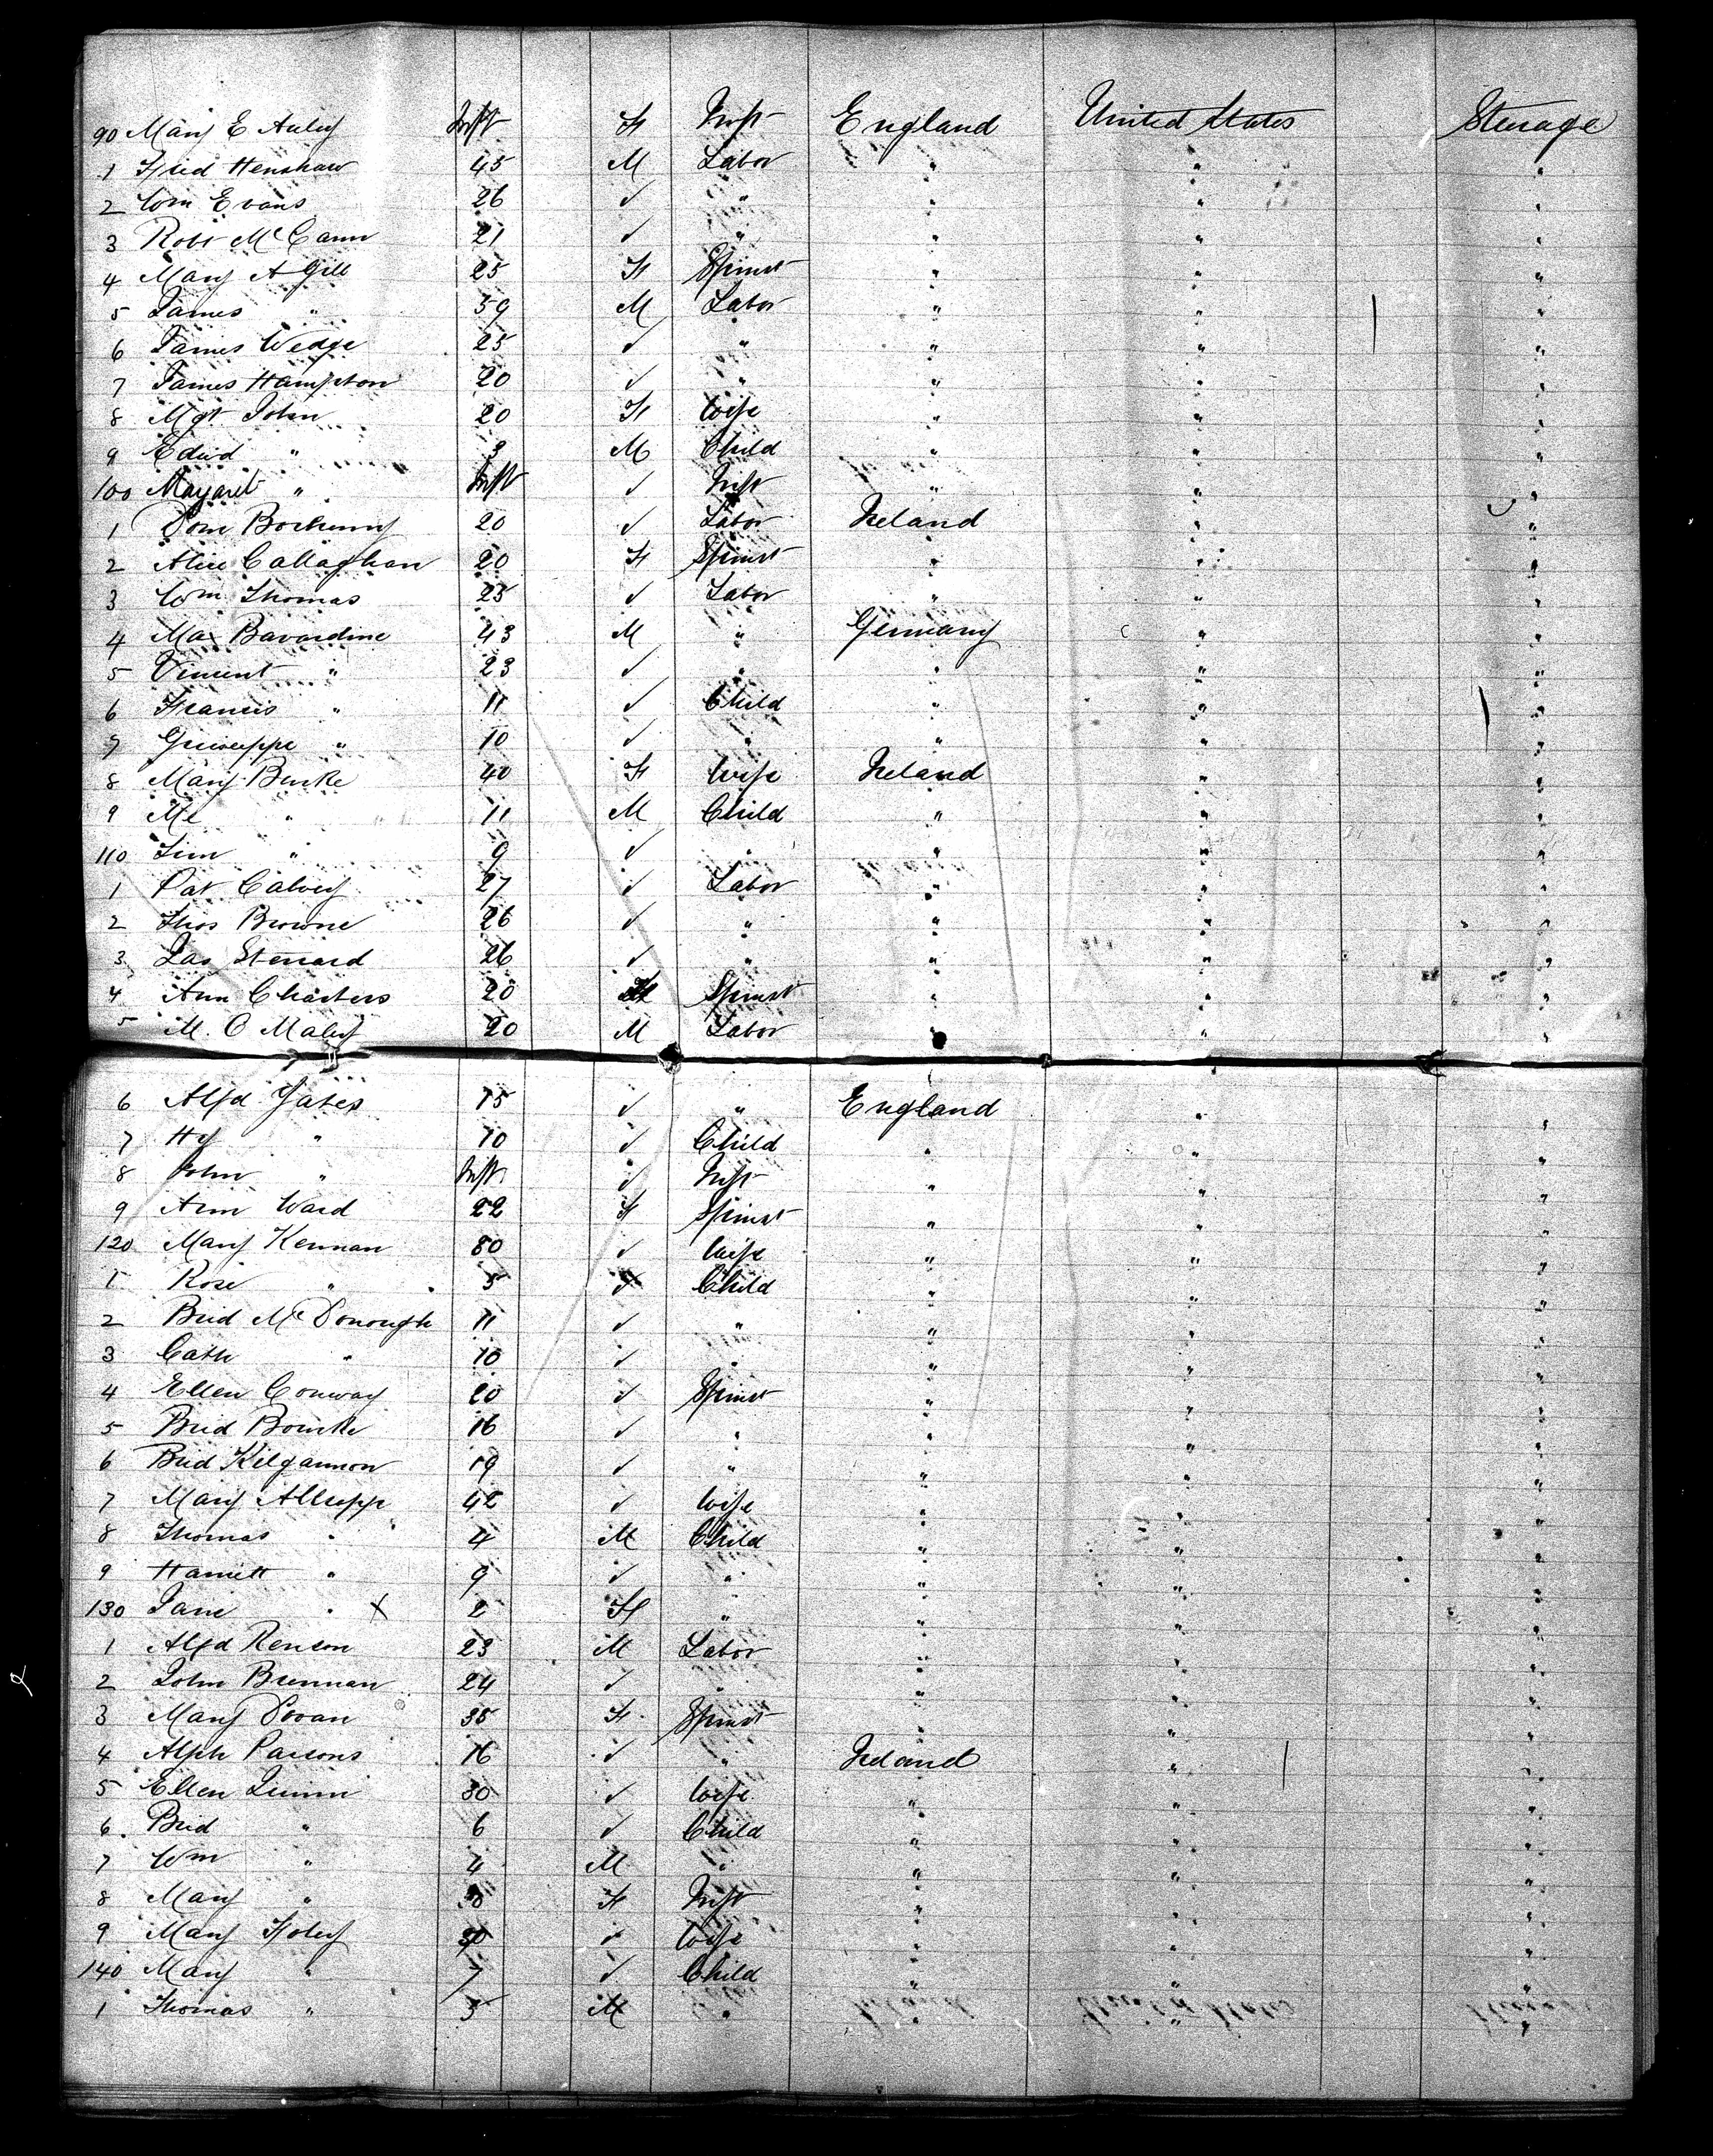 90 Mary E Auley Inft F Inft England United States Steerage
1 Fred Henshaw 45 M Labor " " "
2 Wm Evans 26 ✓ " " " "
3 Robt McCann 21 ✓ " " " "
4 Mary A Gill 25 F Spinst " " "
5 James " 59 M Labor " " "
6 James Wedge 25 ✓ " " " "
7 James Hampton 20 ✓ " " " "
8 Mgt John 20 F Wife " " "
9 Edwd " 3 M Child " " "
100 Margaret " Inft ✓ Inft " " "
1 Dom 20 ✓ Labor Ireland " "
2 Alice Callaghan 20 F Spinst " " "
3 Wm Thomas 25 ✓ Labor " " "
4 Max Bavardine 43 M " Germany " "
5 Vincent " 23 ✓ " " " "
6 Francis " 11 ✓ Child " " "
7 Guiseppe " 10 ✓ " " " "
8 Mary Burke 40 F Wife Ireland " "
9 Ml " 11 M Child " " "
110 Tim " 9 ✓ " " " "
1 Pat Calvey 27 ✓ Labor " " "
2 Thos Browne 26 ✓ " " " "
3 Jas 26 ✓ " " " "
4 Ann Charters 20 F Spinst " " "
5 M. O Maley 20 M Labor " " "
6 Alfd Yates 15 ✓ " England " "
7 Hy " 10 ✓ Child " " "
8 John " Inft ✓ Inft " " "
9 Ann Ward 22 F Spinst " " "
120 Mary Kennan 30 ✓ Wife " " "
1 Rose " 5 ✓ Child " " "
2 Brid McDonough 11 ✓ " " " "
3 Cath " 10 ✓ " " " "
4 Ellen Conway 20 ✓ Spinst " " "
5 Brid Bourke 16 ✓ " " " "
6 Brid Kilgannon 19 ✓ " " " "
7 Mary Allsopp 42 ✓ Wife " " "
8 Thomas " 4 M Child " " "
9 Harriett " 9 ✓ " " " "
130 Jane " X 2 F " " " "
1 Alfd Renson 23 M Labor " " "
2 John Brennan 24 ✓ " " " "
3 Mary Doran 35 F Spinst " " "
4 Alph Parsons 16 ✓ " Ireland " "
5 Ellen Quinn 30 ✓ Wife " " "
6 Brid " 6 ✓ Child " " "
7 Wm " 4 M " " " "
8 Mary " F Inft " " "
9 Mary Foley 30 ✓ Wife " " "
140 Mary " 7 ✓ Child " " "
1 Thomas " 5 M " " " "